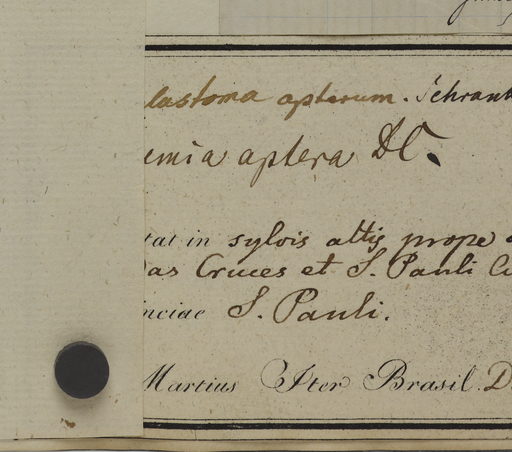 lastoma apterum. Schrank
emia aptera DC.
tat in sylvis altis prope
das Cruces et S. Pauli
nciae S. Pauli.
Martius Iter Brasil. D